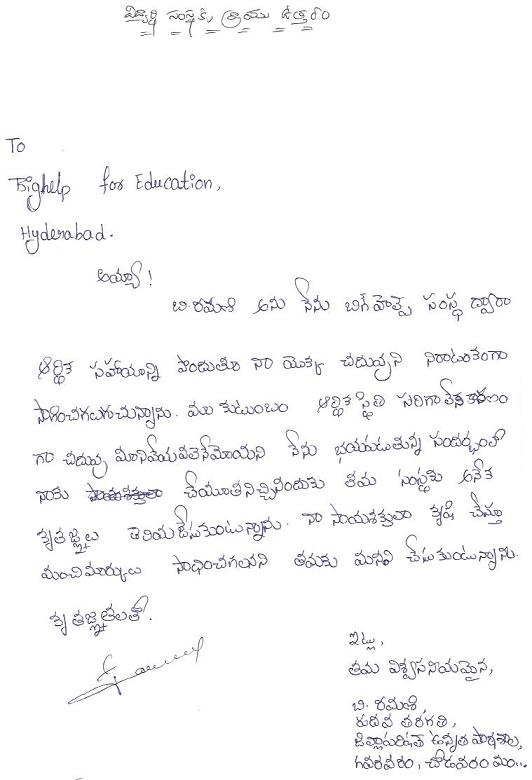 విద్యార్థి సంస్థకు వ్రాయు ఉత్తరం
To
Bighelp for Education,
Hyderabad.
అయ్యా!
బి.రమణి అను నేను బిగ్ హెల్ప్ సంస్థ ద్వారా
ఆర్థిక సహాయాన్ని పొందుతూ నా యొక్క చదువుని నిరాటంకంగా
సాగించగలుగుచున్నాను. మా కుటుంబం ఆర్థిక స్థితి సరిగా లేని కారణం
గా చదువు మానివేయవలెనేమోయని నేను భయపడుతున్న సందర్భంలో
నాకు చేయూతనిచ్చినందుకు తమ సంస్థకు అనేక
కృతజ్ఞతలు తెలియజేసుకుంటున్నాను. నా సాయశక్తులా కృషి చేస్తూ
మంచిమార్కులు సాధించగలనని తమకు మనవి చేసుకుంటున్నాను.
కృతజ్ఞతలతో.
ఇట్లు,
తమ విశ్వసనీయమైన,
బి. రమణి,
పదవ తరగతి,
జిల్లాపరిషత్ ఉన్నత పాఠశాల,
గవరవరం, చోడవరం మం..